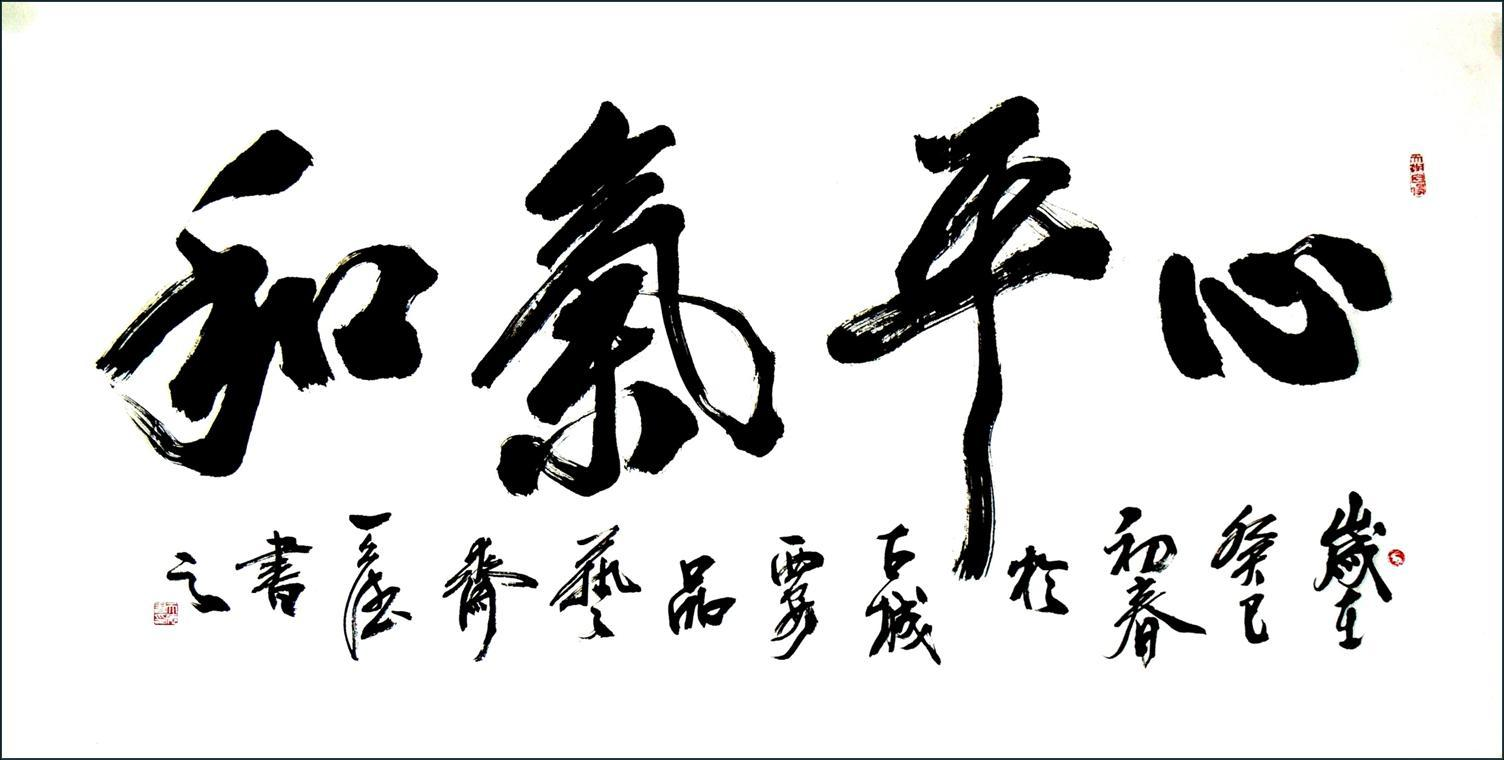 心平氣和
歲在癸巳初春於古城西安品藝齋書之